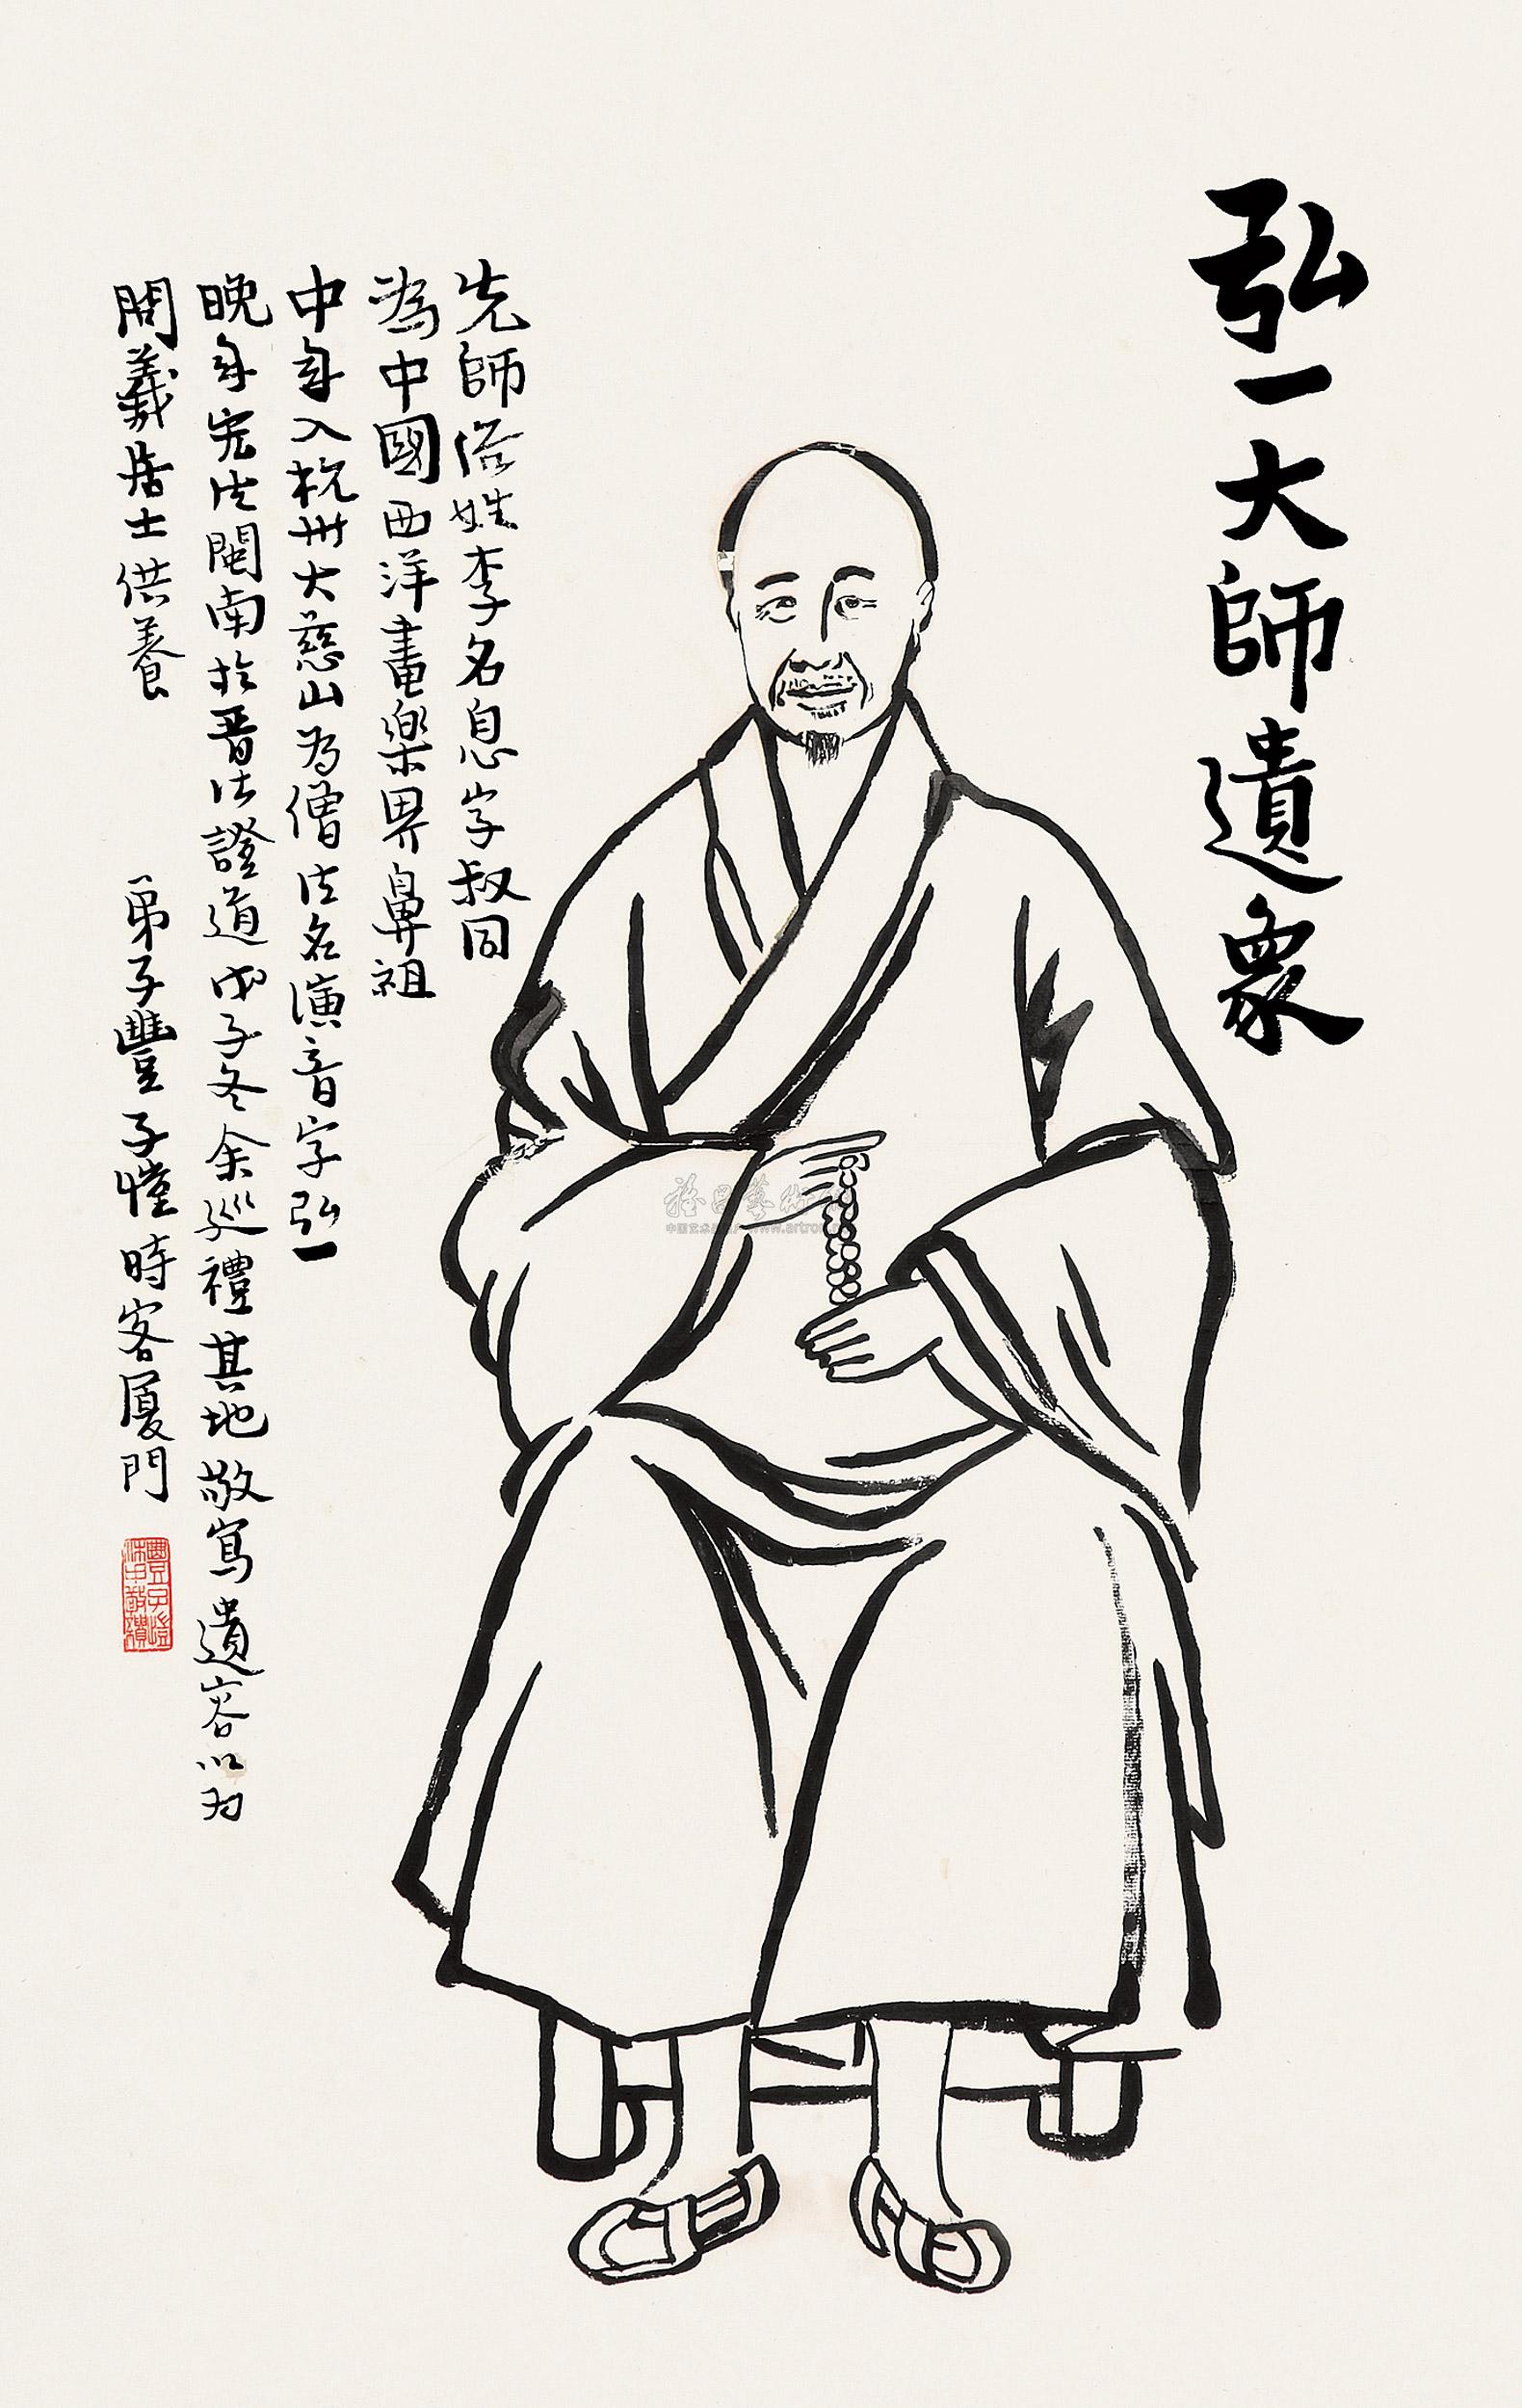 弘一大師遺象
先師俗姓李名息字叔同
為中國西洋畫樂界鼻祖
中年入杭州大慈山为僧法名演音字弘一
晚年宏法閩南於晋江證道戊子冬余巡禮其地敬寫遺容以为
開義居士供養
弟子豐子愷時客厦門